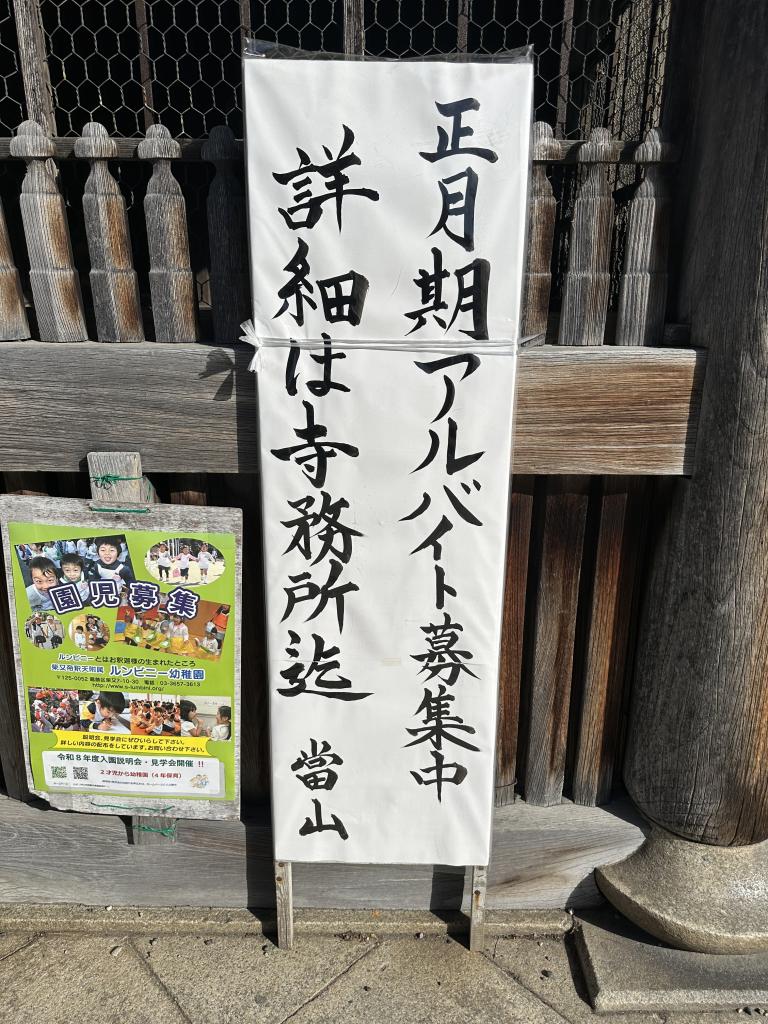 正月期アルバイト募集中
詳細は寺務所迄
當山
園児募集
ルンビニーとはお釈迦様の生まれたところ
柴又帝釈天附属 ルンビニー幼稚園
〒125-0052 葛飾区柴又7-10-30 電話:03-3657-3613
http://www.s-lumbini.org/
説明会、見学会にぜひいらして下さい。
詳しい内容の配布をしています。お問い合わせ下さい。
令和8年度入園説明会・見学会開催!!
2才児から幼稚園(4年保育)